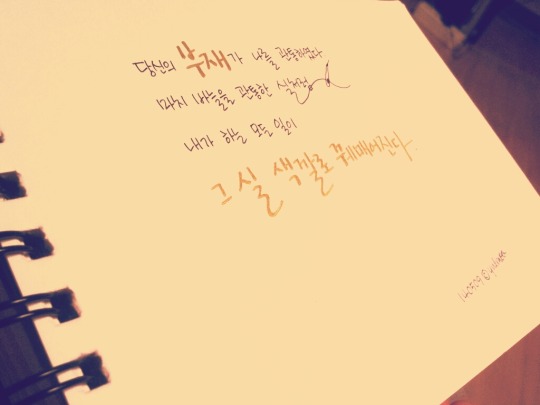 당신의 부재가 나를 관통하였다
마치 바늘을 관통한 실처럼
내가 하는 모든 일이
그 실 색깔로 꿰매어진다.